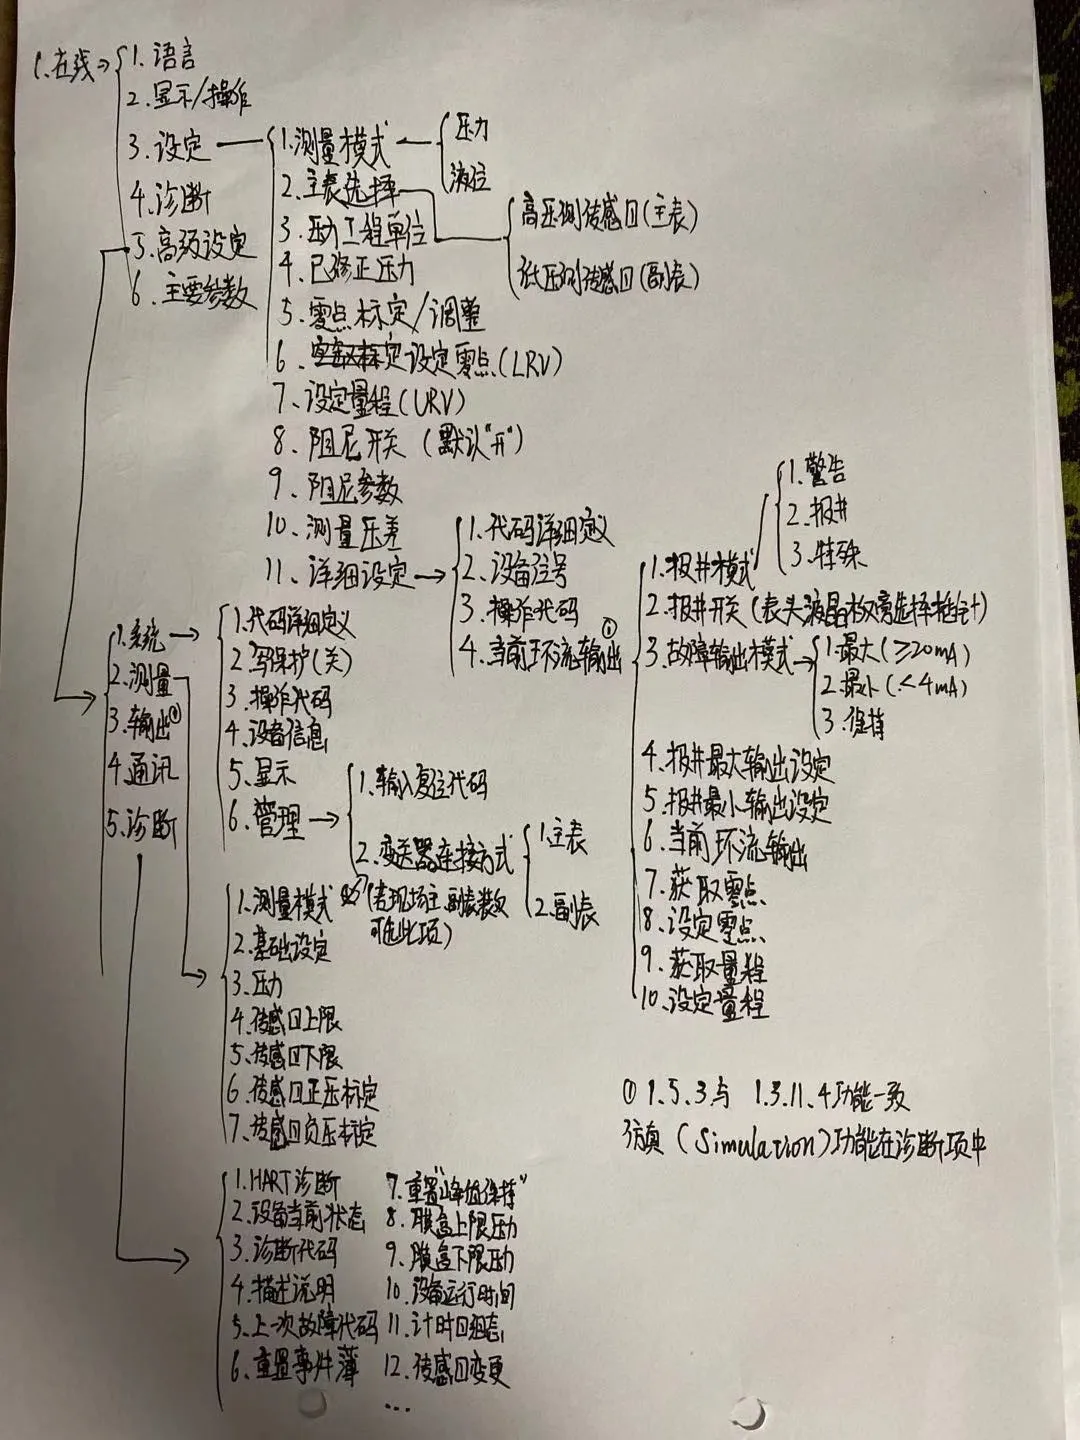 1.在线→
1.语言
2.显示/操作
3.设定
4.诊断
5.高级设定
6.主要参数
1.测量模式
压力
液位
2.主表选择
高压侧传感口(主表)
低压侧传感口(副表)
3.压力工程单位
4.已修正压力
5.零点标定/调整
6.设定零点(LRV)
7.设定量程(URV)
8.阻尼开关(默认"开")
9、阻尼参数
10、测量压差
11、详细设定→
1.代码详细定义
2.设备位号
3.操作代码
4.当前环流输出①
1.系统→
2.测量
3.输出①
4.通讯
5.诊断
1.代码详细定义
2.写保护(关)
3.操作代码
4.设备信息
5.显示
6.管理→
1.输入复位代码
2.变送器连接方式
(若现场主、副表装反
可选此项)
1.主表
2.副表
1.测量模式
2.基础设定
3.压力
4.传感口上限
5.传感口下限
6.传感口正压标定
7.传感口负压标定
1.报井模式
1.警告
2.报井
3.特殊
2.报井开关(表头液晶
3.故障输出模式→
1.最大(≥20mA)
2.最小(<4mA)
3.保持
4.报井最大输出设定
5.报井最小输出设定
6.当前环流输出
7.获取零点
8.设定零点
9.获取量程
10.设定量程
1.HART诊断
2.设备当前状态
3.诊断代码
4.描述说明
5.上一次故障代码
6.重置事件薄
7.重置"峰值保持"
8.膜盒上限压力
9.膜盒下限压力
10.设备运行时间
11.计时口组态
12.传感口变更
...
①1.5.3与 1.3.11.4功能一致
仿真(Simulation)功能在诊断项中